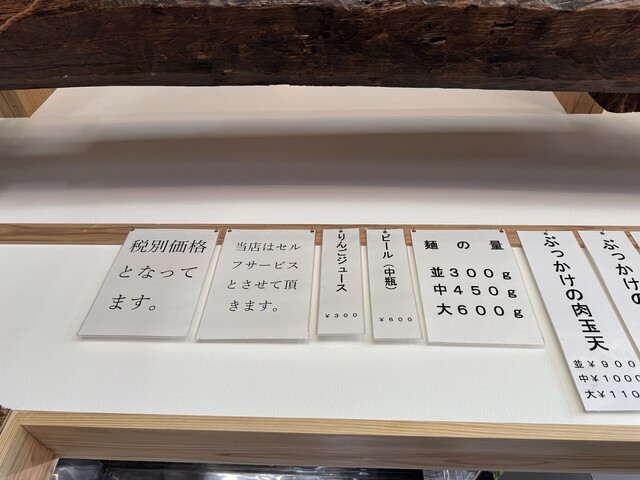 税別価格
となって
ます。
当店はセル
フサービス
とさせて頂
きます。
りんごジュース
¥300
ビール（中瓶）
¥600
麺の量
並300g
中450g
大600g
ぶっかけの肉玉天
並¥900
中¥1000
大¥110
ぶっかけの